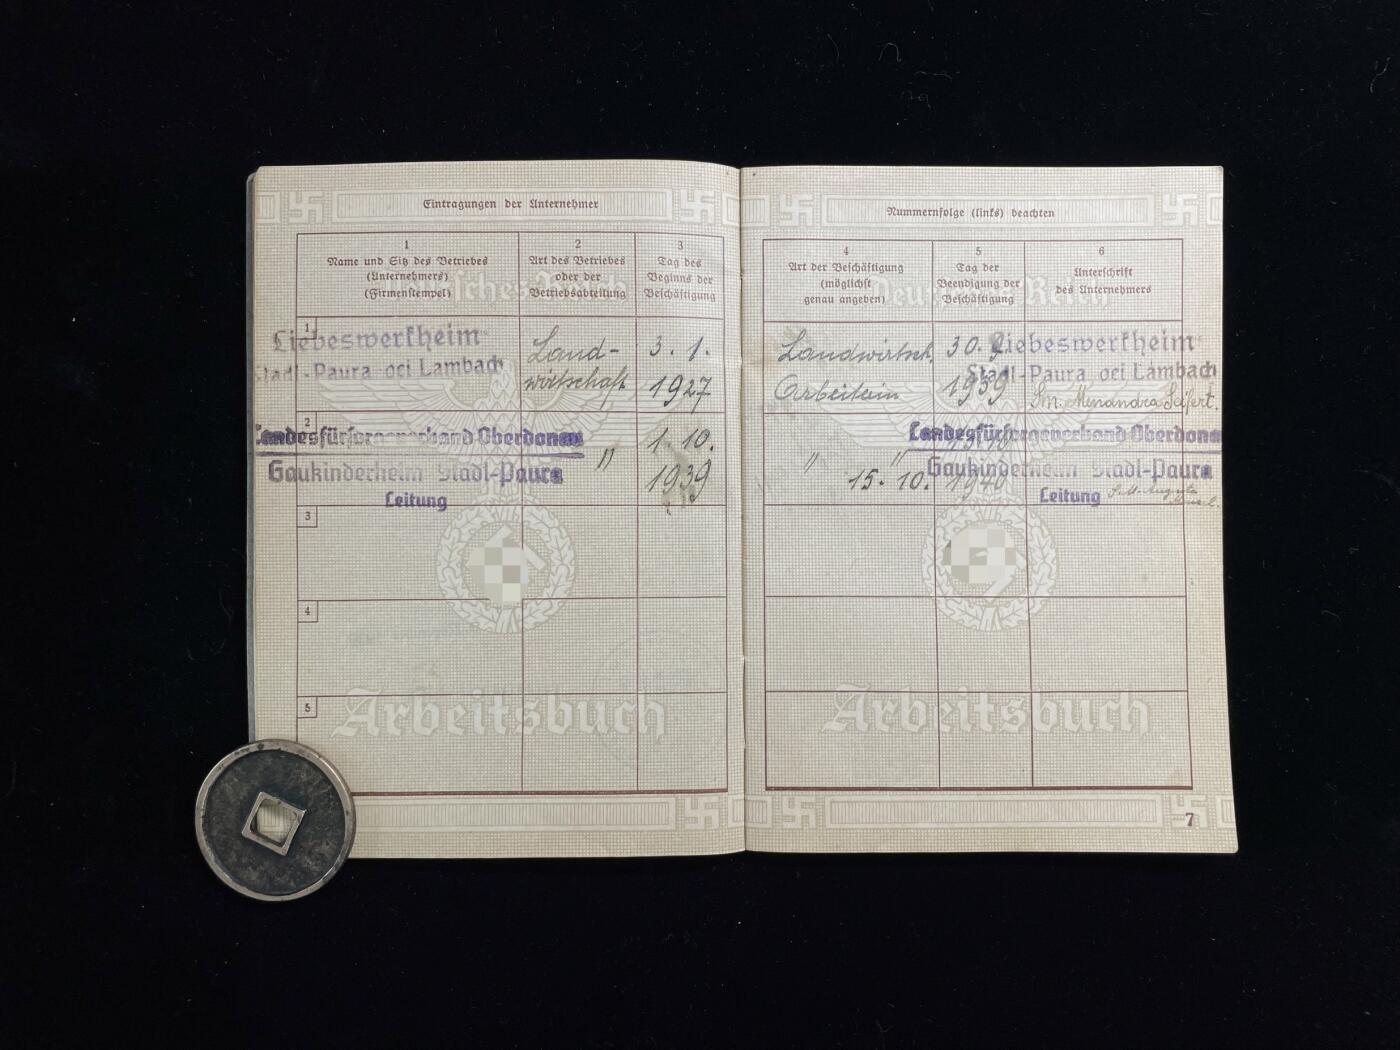 Eintragungen der Unternehmer
1
Name und Sitz des Betriebes
(Unternehmers)
(Firmenstempel)
2
Art des Betriebes
oder der
Betriebsabteilung
3
Tag des
Beginns der
Beschäftigung
1
Liebeswerkheim
Stadl-Paura bei Lambach
Land-
wirtschaft
3. 1.
1927
2
Landesfürsorgeverband Oberdonau
Gaukinderheim Stadl-Paura
Leitung
"
1. 10.
1939
3
4
5
Arbeitsbuch
Nummernfolge (links) beachten
4
Art der Beschäftigung
(möglichst
genau angeben)
5
Tag der
Beendigung der
Beschäftigung
6
Unterschrift
des Unternehmers
Deutsches Reich
Landwirtsch.
Arbeiterin
30. 9.
1939
Liebeswerkheim
Stadl-Paura bei Lambach
Seifert.
"
"
15. 10.
1940
Landesfürsorgeverband Oberdonau
Gaukinderheim Stadl-Paura
Leitung
Arbeitsbuch
7